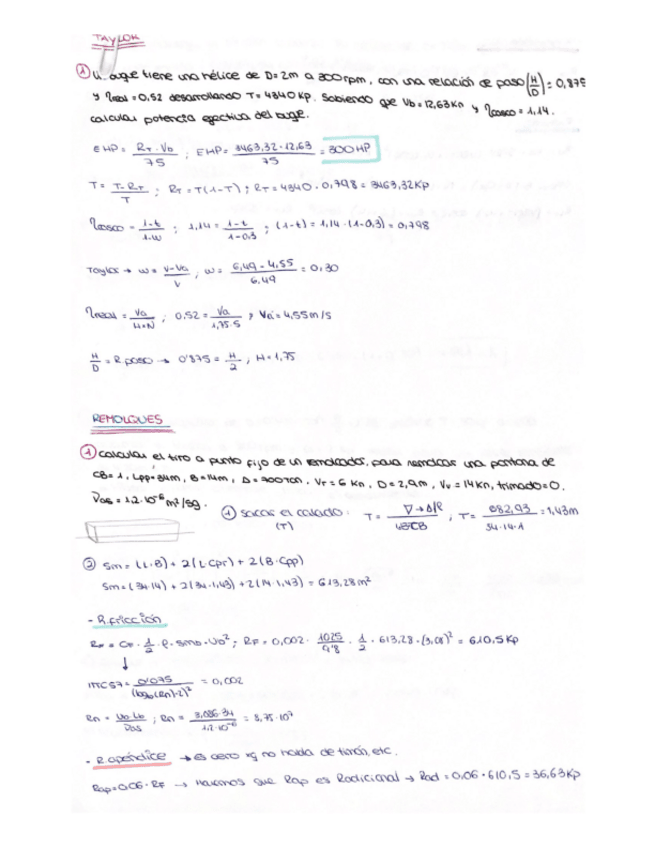 TAYLOR
① Un buque tiene una hélice de D=2m a 300rpm, con una relación de paso (H/D) = 0,875
y ηreal = 0,52 desarrollando T= 4340 Kp. Sabiendo que Vb=12,63Kn y ηcasco = 1,14.
calcular potencia efectiva del buque.
EHP = RT·Vb / 75 ; EHP = 3463,32·12,63 / 75 = 300HP
T = T-RT / T ; RT = T(1-T) ; RT = 4340·0,798 = 3463,32Kp
ηcasco = 1-t / 1-w ; 1,14 = 1-t / 1-0,3 ; (1-t) = 1,14·(1-0,3) = 0,798
Taylor → w = V-Va / V ; w = 6,49-4,55 / 6,49 = 0,30
ηreal = Va / H·N ; 0,52 = Va / 1,75·5 ; Va = 4,55m/s
H/D = R.paso → 0'875 = H/2 ; H = 1,75
REMOLQUES
① calcular el tiro a punto fijo de un remolcador, para remolcar una pontona de
CB=1, Lpp=34m, B=14m, Δ=700Ton, Vr=6Kn, D=2,9m, Vv=14Kn, trimado=0.
νas = 1,2·10⁻⁶ m²/sg.
① sacar el calado (T) : T = ∇→Δ/ρ / L·B·CB ; T = 682,93 / 34·14·1 = 1,43m
② Sm = (L·B) + 2(L·Cpr) + 2(B·Cpp)
Sm = (34·14) + 2(34·1,43) + 2(14·1,43) = 613,28m²
- R.fricción
RF = CF · 1/2 · ρ · Smb · Vb² ; RF = 0,002 · 1025/9'8 · 1/2 · 613,28 · (3,08)² = 610,5Kp
↓
ITTC57 = 0'075 / (log₁₀(Rn)-2)² = 0,002
Rn = Vb·Lb / νas ; Rn = 3,086·34 / 1,2·10⁻⁶ = 8,75·10⁷
- R.apéndice → es cero xq no habla de timón, etc.
Rap=0,06·RF → Hacemos que Rap es Radicional → Rad = 0,06·610,5 = 36,63Kp